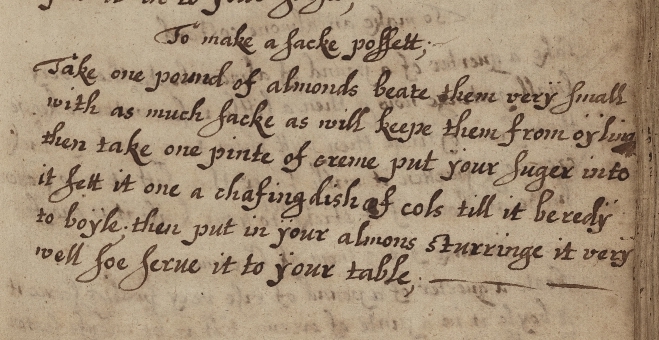 To make a sacke possett;
Take one pound of almonds beate them very small
with as much sacke as will keepe them from oyling
then take one pinte of creme put your suger into
it sett it one a chafingdish of cols till it be redy
to boyle; then put in your almons sturringe it very
well soe serve it to your table;